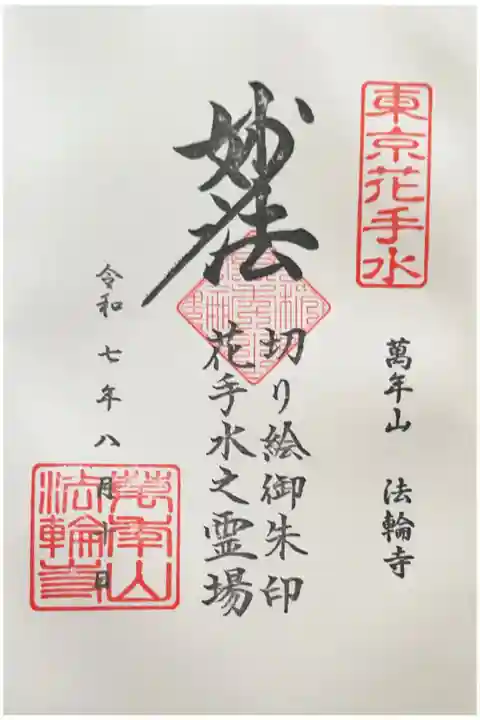 東京花手水
萬年山　法輪寺
妙法
切り絵御朱印
花手水之霊場
令和七年八月十日
萬年山
法輪寺